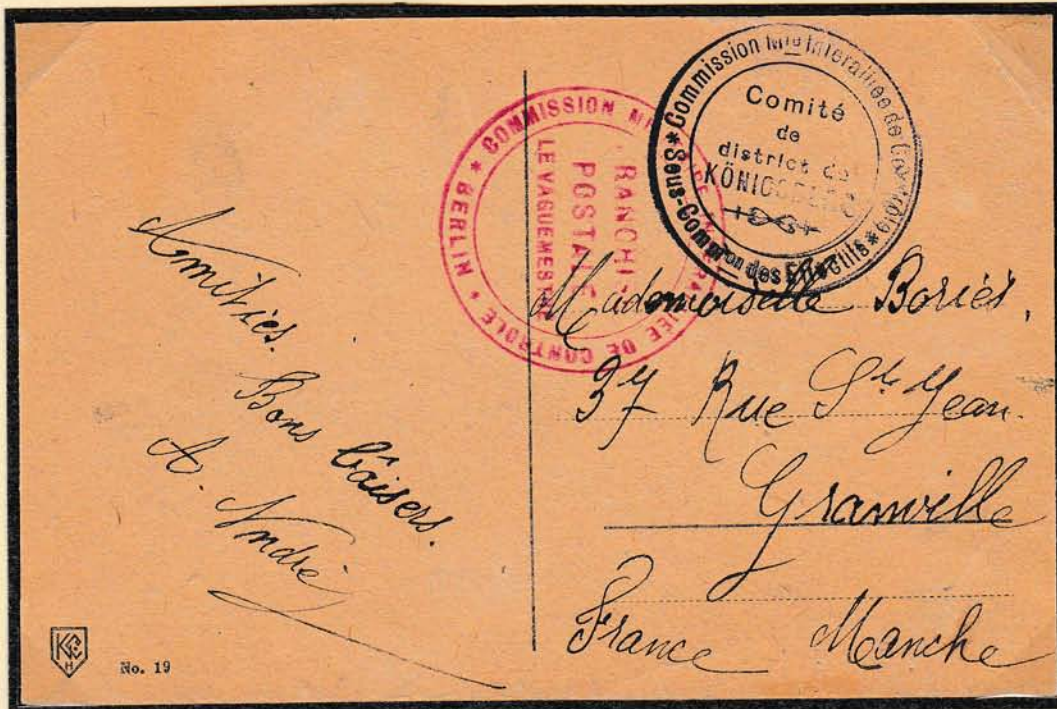 Amitiés.
Bons bâisers.
A. André
No. 19
* COMMISSION INTERALLIÉE DE CONTROLE * BERLIN
FRANCHISE
POSTALE
LE VAGUEMESTRE
* Commission Mre Interalliée de Contrôle * Sous-Common des Effectifs
Comité
de
district de
KÖNIGSBERG
Mademoiselle Boriés,
37 Rue St Jean.
Granville
France Manche